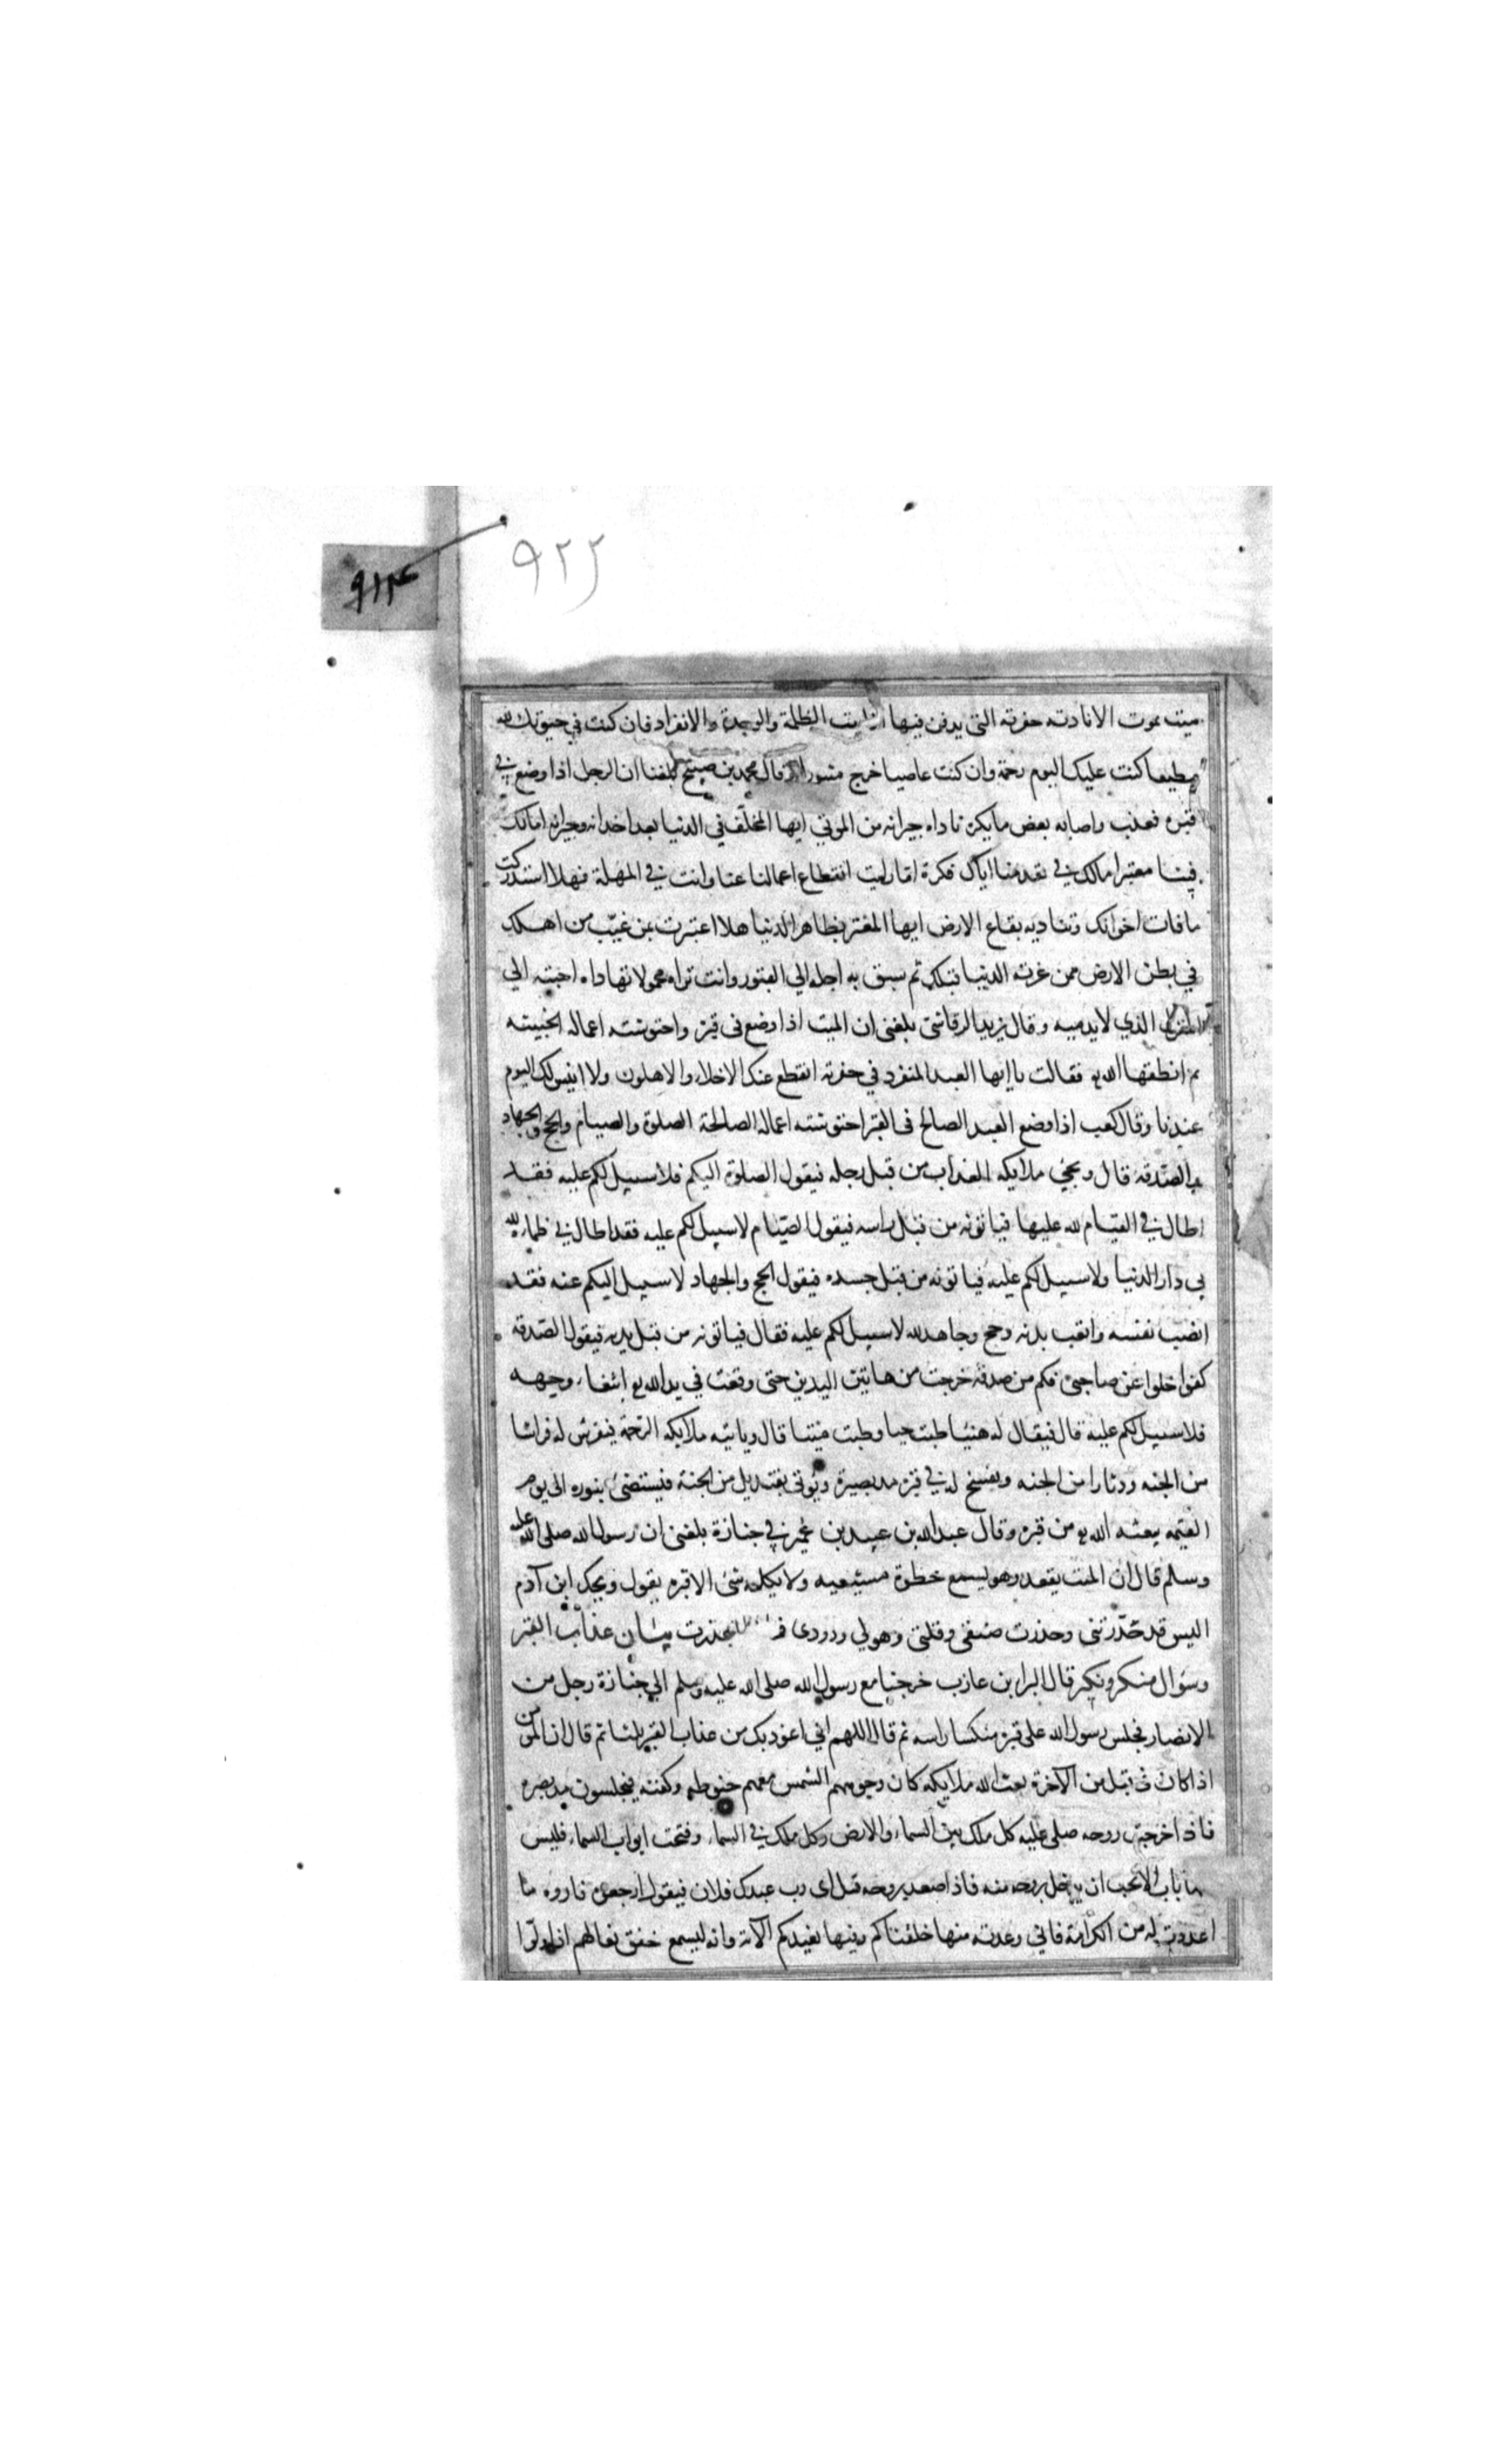 ٩١٤
٩٢٢
ميت يموت الا نادته حفرته التى يدفن فيها انا بيت الظلمة والوحدة والانفراد فان كنت في حيوتك لله
مطيعا كنت عليك اليوم رحمة وان كنت عاصيا خرج مثبورا وقال محمد بن صبيح بلغنا ان الرجل اذا وضع في
قبره فعذب واصابه بعض ما يكره ناداه جيرانه من الموتي ايها المخلف في الدنيا بعد اخدانه وجيرانه اما لك
فينا معتبر اما لك في تقدمنا اياك فكرة اما رايت انقطاع اعمالنا عنا وانت في المهلة فهلا استدركت
ما فات اخوانك وتناديه بقاع الارض ايها المغتر بظاهر الدنيا هلا اعتبرت بمن غيب من اهلك
في بطن الارض ممن غرته الدنيا قبلك ثم سبق به اجله الي القبور وانت تراه محمولا تهاداه احبته الي
المنزل الذي لا بد منه وقال يزيد الرقاشي بلغنى ان الميت اذا وضع فى قبره واحتوشته اعماله الخبيثه
ثم انطقها الله تع فقالت يا ايها العبد المنفرد في حفرته انقطع عنك الاخلاء والاهلون ولا انيس لك اليوم
عندنا وقال كعب اذا وضع العبد الصالح فى القبر احتوشته اعماله الصالحة الصلوة والصيام والحج والجهاد
والصدقة قال ويجئ ملايكه العذاب من قبل رجله فيقول الصلوة اليكم فلا سبيل لكم عليه فقد
اطال في القيام لله عليها فياتونه من قبل راسه فيقول الصيام لا سبيل لكم عليه فقد اطال في ظماءه لله
في دار الدنيا ولا سبيل لكم عليه فياتونه من قبل جسده فيقول الحج والجهاد لا سبيل اليكم عنه فقد
انصب نفسه واتعب بدنه وحج وجاهد لله لا سبيل لكم عليه فقال فياتونه من قبل يديه فيقول الصدقه
كفوا خلوا عن صاحبى فكم من صدقة خرجت من هاتين اليدين حتى وقعت في يد الله تع ابتغاء وجهه
فلا سبيل لكم عليه قال فيقال له هنيئا طبت حيا وطبت ميتا قال وياتيه ملايكه الرحمة فيفرش له فراشا
من الجنه ودثارا من الجنه ويفسح له في قبره مد بصره ويؤتى بقنديل من الجنة فيستضئ بنوره الى يوم
القيمه يبعثه الله تع من قبره وقال عبد الله بن عبيد بن عمير في جنازة بلغنى ان رسول الله صلى الله عليه
وسلم قال ان الميت يقعد وهو يسمع خطوة مشيعيه ولا يكلمه شئ الا قبره يقول ويحك ابن آدم
اليس قد حذرتنى وحذرت ضيقى ونتنى وهولي ودودى بيان عذاب القبر
وسؤال منكر ونكير قال البرا بن عازب خرجنا مع رسول الله صلى الله عليه وسلم الي جنازة رجل من
الانصار فجلس رسول الله على قبره منكسا راسه ثم قال اللهم اني اعوذ بك من عذاب القبر ثلثا ثم قال ان المؤمن
اذا كان فى قبل من الآخرة بعث الله ملايكه كان وجوههم الشمس معهم حنوطه وكفنه فيجلسون مد بصره
فاذا خرجت روحه صلى عليه كل ملك بين السماء والارض وكل ملك في السماء وفتحت ابواب السماء فليس
منها باب الا يحب ان يدخل بروحه منه فاذا صعد بروحه قيل اى رب عبدك فلان فيقول ارجعوه فاروه ما
اعددت له من الكرامة فاني وعدته منها خلقناكم وفيها نعيدكم الآية وانه ليسمع خفق نعالهم اذا ولوا